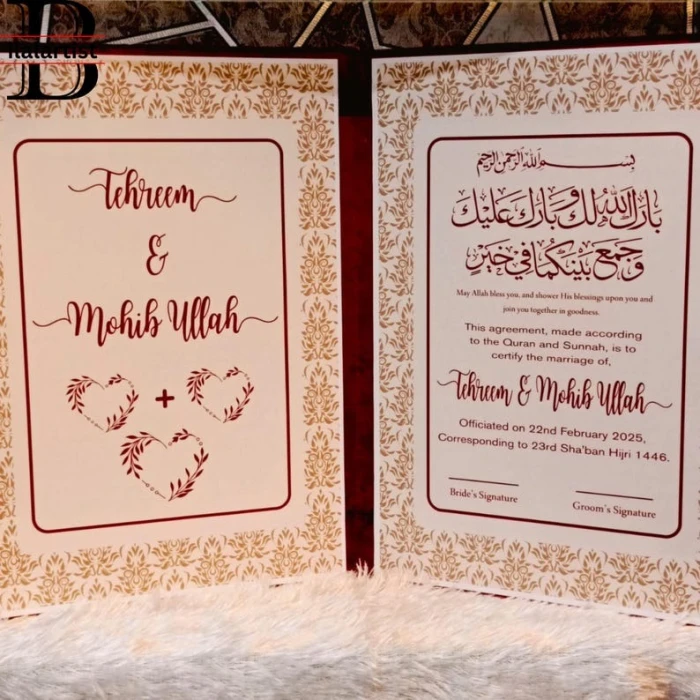 B
nalartist
Tehreem
&
Mohib Ullah
+
بِسْمِ اللهِ الرَّحْمٰنِ الرَّحِيْمِ
بَارَكَ اللهُ لَكَ وَبَارَكَ عَلَيْكَ
وَجَمَعَ بَيْنَكُمَا فِي خَيْرٍ
May Allah bless you, and shower His blessings upon you and
join you together in goodness.
This agreement, made according
to the Quran and Sunnah, is to
certify the marriage of,
Tehreem & Mohib Ullah
Officiated on 22nd February 2025,
Corresponding to 23rd Sha'ban Hijri 1446.
Bride's Signature
Groom's Signature